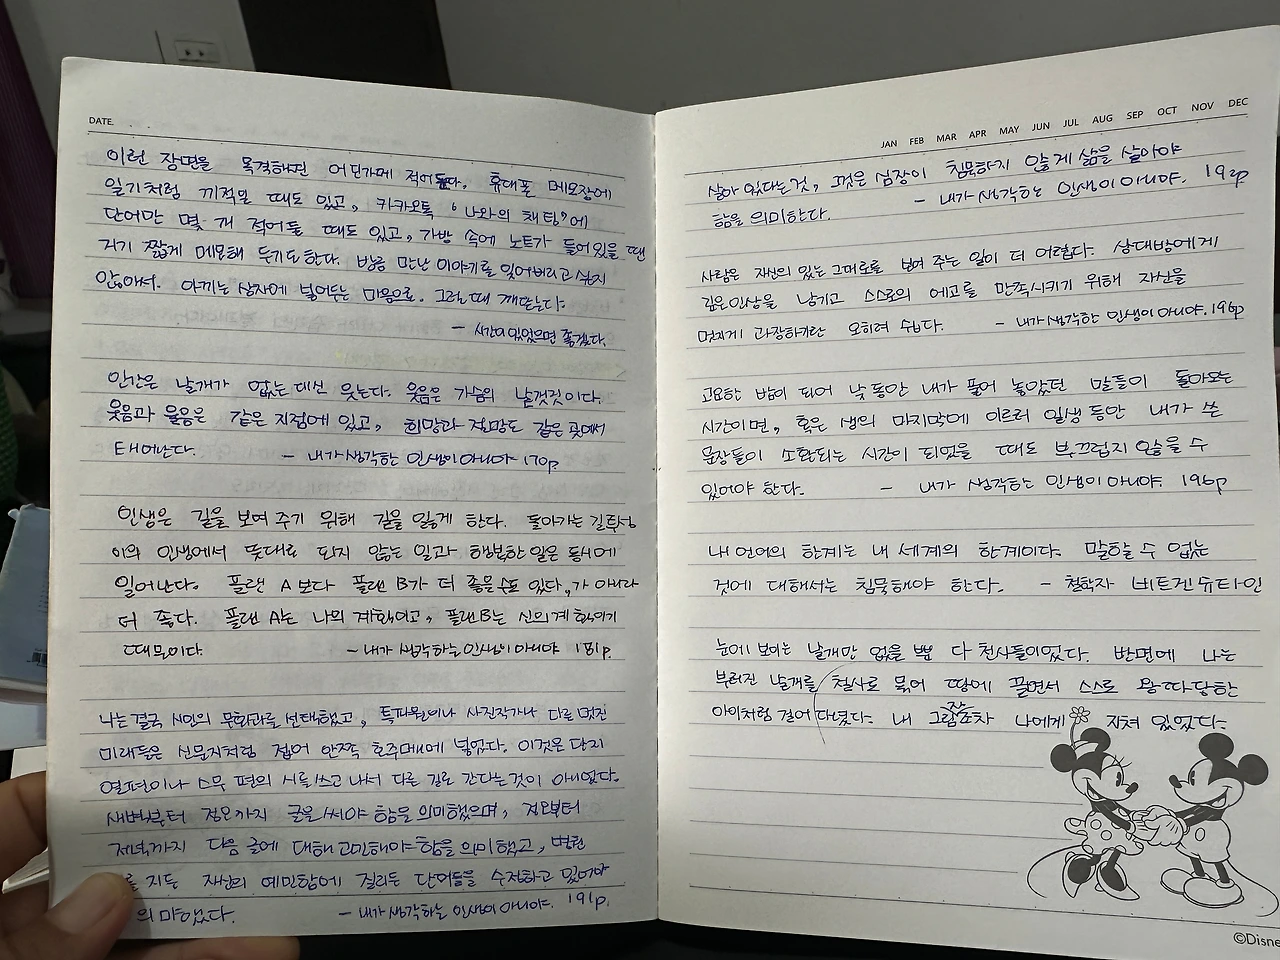 DATE.
이런 장면을 목격하면 어딘가에 적어둔다. 휴대폰 메모장에
일기처럼 끼적일 때도 있고, 카카오톡 '나와의 채팅'에
단어만 몇 개 적어둘 때도 있고, 가방 속에 노트가 들어있을 땐
거기 짧게 메모해 두기도 한다. 방금 만난 이야기를 잊어버리고 싶지
않아서. 아끼는 상자에 넣어두는 마음으로. 그럴 때 깨닫는다.
- 시간이 있었으면 좋겠다.
인간은 날개가 없는 대신 웃는다. 웃음은 가슴의 날갯짓이다.
웃음과 울음은 같은 지점에 있고, 희망과 절망도 같은 곳에서
태어난다. - 내가 생각한 인생이 아니야 170p.
인생은 길을 보여 주기 위해 길을 잃게 한다. 돌아가는 길투성
이의 인생에서 뜻대로 되지 않는 일과 행복한 일은 동시에
일어난다. 플랜 A보다 플랜 B가 더 좋을 수도 있다. 가 아니라
더 좋다. 플랜 A는 나의 계획이고, 플랜B는 신의 계획이기
때문이다. - 내가 생각하는 인생이 아니야 181p.
나는 결국 시인의 무화과를 선택했고, 특파원이나 사진작가나 다른 멋진
미래들은 신문지처럼 접어 안쪽 호주머니에 넣었다. 이것은 단지
열편이나 스무 편의 시를 쓰고 나서 다른 길로 간다는 것이 아니었다.
새벽부터 정오까지 글을 써야 함을 의미했으며, 정오부터
저녁까지 다음 글에 대해 고민해야 함을 의미했고,
를 지든 자신의 예민함에 질리든 단어들을 수정하고 있어야
의미했다. - 내가 생각하는 인생이 아니야. 191p.
JAN FEB MAR APR MAY JUN JUL AUG SEP OCT NOV DEC
살아 있다는 것, 그것은 심장이 침묵하지 않게 삶을 살아야
함을 의미한다. - 내가 생각하는 인생이 아니야. 192p
사람은 자신의 있는 그대로를 보여 주는 일이 더 어렵다. 상대방에게
깊은 인상을 남기고 스스로의 에고를 만족시키기 위해 자신을
멋지게 과장하기란 오히려 쉽다. - 내가 생각한 인생이 아니야. 196p
고요한 밤이 되어 낮 동안 내가 풀어 놓았던 말들이 돌아오는
시간이면, 혹은 생의 마지막에 이르러 일생 동안 내가 쓴
문장들이 소환되는 시간이 되었을 때도 부끄럽지 않을 수
있어야 한다. - 내가 생각하는 인생이 아니야 196p
내 언어의 한계는 내 세계의 한계이다. 말할 수 없는
것에 대해서는 침묵해야 한다. - 철학자 비트겐슈타인
눈에 보이는 날개만 없을 뿐 다 천사들이었다. 반면에 나는
부러진 날개를 철사로 묶어 땅에 끌면서 스스로 왕따당한
아이처럼 걸어 다녔다. 내 그림자조차 나에게 지쳐 있었다.
©Disne